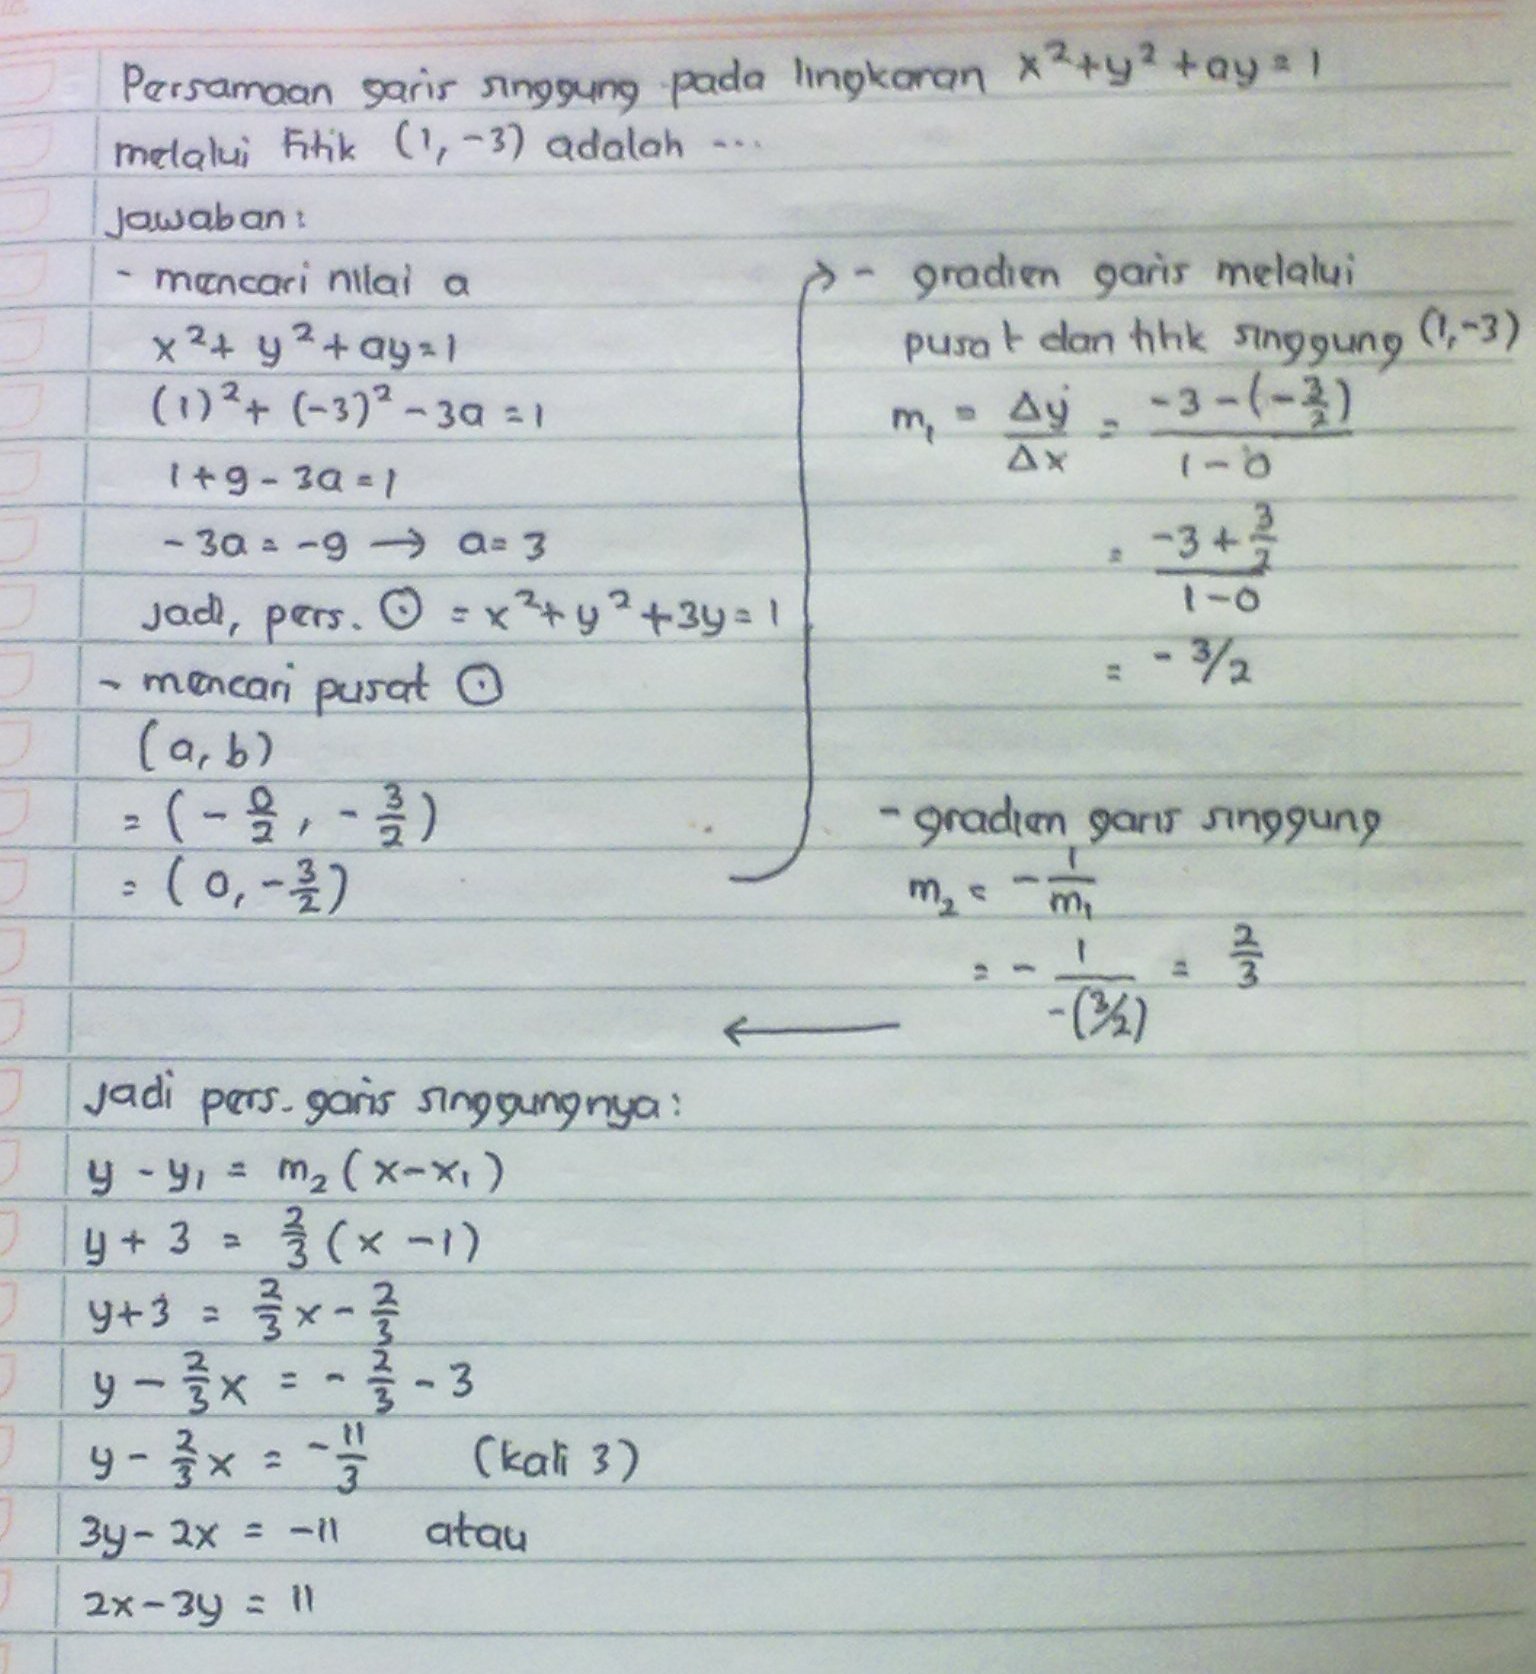 Persamaan garis singgung pada lingkaran x²+y²+ay=1
melalui titik (1,-3) adalah ...
Jawaban:
- mencari nilai a
x²+ y²+ay=1
(1)²+ (-3)² - 3a = 1
1+9-3a=1
-3a = -9 → a=3
Jadi, pers. ⊙ = x²+y²+3y=1
- mencari pusat ⊙
(a, b)
= (-0/2, -3/2)
= (0, -3/2)
→ - gradien garis melalui
pusat dan titik singgung (1,-3)
m₁ = Δy/Δx = (-3-(-3/2))/(1-0)
= (-3+3/2)/(1-0)
= -3/2
- gradien garis singgung
m₂ = -1/m₁
= -1/-(3/2) = 2/3
←
Jadi pers. garis singgungnya:
y - y₁ = m₂(x-x₁)
y + 3 = 2/3 (x -1)
y+3 = 2/3 x - 2/3
y - 2/3 x = - 2/3 - 3
y - 2/3 x = - 11/3 (kali 3)
3y - 2x = -11 atau
2x-3y = 11